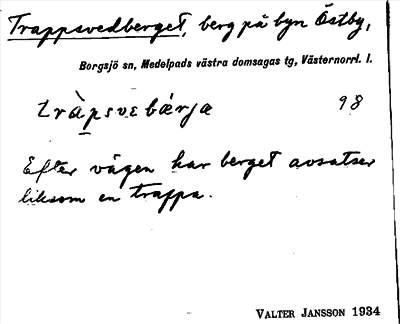 Trappsvedberget, berg på byn Östby,
Borgsjö sn, Medelpads västra domsagas tg, Västernorrl. l.
tràpsvebárja 98
Efter vägen har berget avsatser
liksom en trappa.
VALTER JANSSON 1934